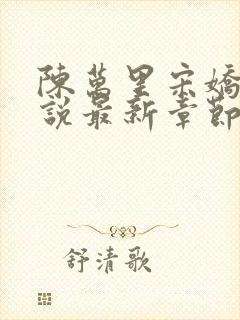 陳萬里宋嬌
說最新章節
舒清歌